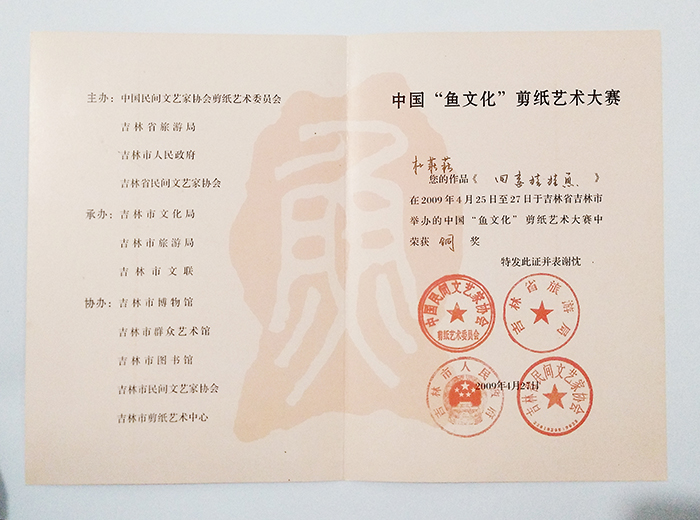 主办：中国民间文艺家协会剪纸艺术委员会
吉林省旅游局
吉林市人民政府
吉林省民间文艺家协会
承办：吉林市文化局
吉林市旅游局
吉林市文联
协办：吉林市博物馆
吉林市群众艺术馆
吉林市图书馆
吉林市民间文艺家协会
吉林市剪纸艺术中心
中国“鱼文化”剪纸艺术大赛
您的作品《四喜娃娃鱼》
在2009年4月25日至27日于吉林省吉林市
举办的中国“鱼文化”剪纸艺术大赛中
荣获 铜 奖
特发此证并表谢忱
中国民间文艺家协会
剪纸艺术委员会
吉林省旅游局
吉林市人民政府
2009年4月27日
吉林省民间文艺家协会